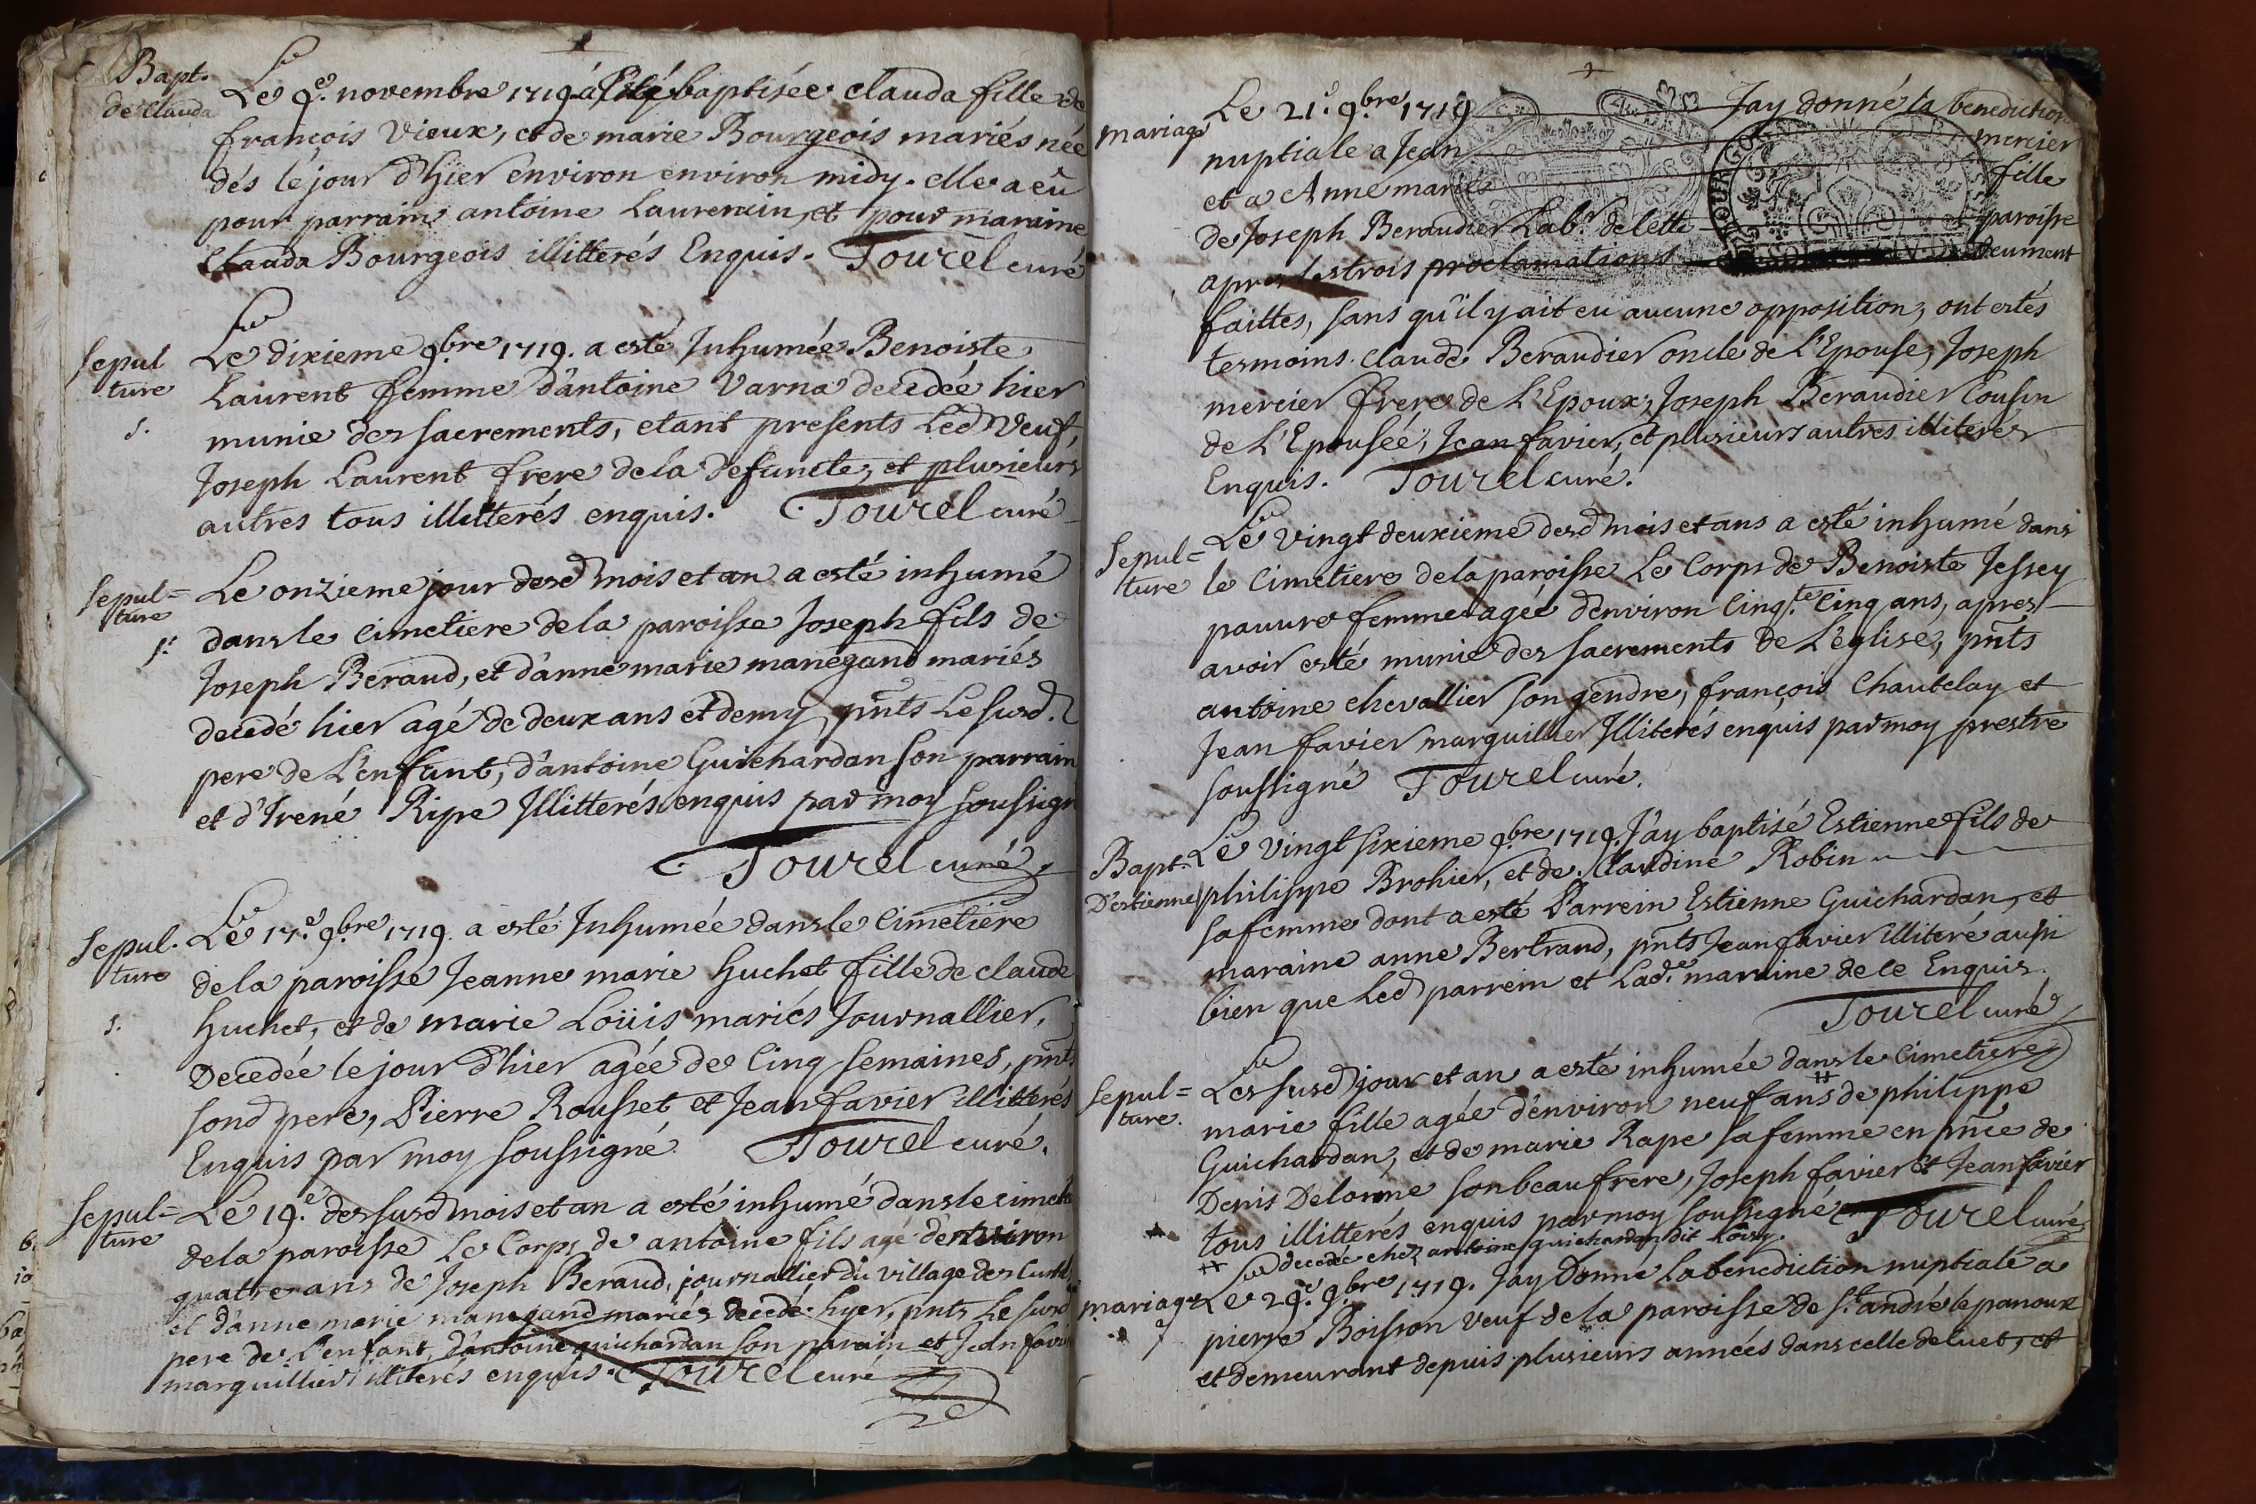 Bapt.
de Clauda
Le 9e. novembre 1719 a été baptisée Clauda fille de
françois Vieux, et de marie Bourgeois mariés née
dés le jour d'hier environ environ midy. elle a eû
pour parrain antoine Laurencin, et pour maraine
Clauda Bourgeois illitterés Enquis. Tourel curé
Sepul
ture
Le dixieme 9.bre 1719. a esté Inhumée Benoiste
Laurent femme d'antoine Varna decedée hier
munie des sacrements, etant presents Led veuf,
Joseph Laurent frere dela defuncte, et plusieurs
autres tous illitterés enquis. Tourel curé
Sepul=
ture
Le onzieme jour desd mois et an a esté inhumé
dans le Cimetiere dela paroisse Joseph fils de
Joseph Beraud, et d'anne marie manegand mariés
decedé hier agé de deux ans et demy, pnts Le susd.
pere de L'enfant, d'antoine Guichardan son parrain
et d'Irené Ripe Illitterés enquis par moy soussigné
Tourel curé
Sepul.
ture
Le 17.e 9.bre 1719. a esté Inhumée dans le Cimetiere
dela paroisse Jeanne marie huchet fille de claude
huchet, et de marie Loüis mariés Journallier,
Decedée le jour d'hier agée de Cinq semaines, pnts
sond pere, Pierre Rousset et Jean favier illitterés
Enquis par moy soussigné Tourel curé.
Sepul=
ture
Le 19.e des susd mois et an a esté inhumé dans le cimete
dela paroisse Le Corps de antoine fils agé d'environ
quatre ans de Joseph Beraud, journallier du village des
et d'anne marie manegand mariés decedé hyer, pnts le susd
pere de L'enfant, d'antoine guichardan son parain et Jean favie
marguillier illiterés enquis. Tourel curé
mariage
Le 21.e 9.bre 1719 Jay donné la benediction
nuptiale a Jean mercier
et a Anne marie fille
de Joseph Beraudier Lab.r de cette paroisse
apres les trois proclamations deument
faittes, sans qu'il y ait eu aucune opposition, ont estés
tesmoins claude Beraudier oncle de L'Epouse, Joseph
mercier frere de L'Epoux, Joseph Beraudier Cousin
de L'Epousée, Jean favier, et plusieurs autres illiteres
Enquis. Tourel curé.
Sepul=
ture
Le vingt deuxieme desd mois et ans a esté inhumé dans
le Cimetiere dela paroisse Le Corps de Benoiste Jessey
pauvre femme agée d'environ Cinq.te Cinq ans, apres
avoir esté munie des sacrements de L'eglise, pnts
antoine chevallier son gendre, françois Chautelay et
Jean favier marguillier Illiterés enquis par moy prestre
soussigné Tourel curé.
Bapt.
D'estienne
Le vingt sixieme 9.bre 1719. J'ay baptisé Estienne fils de
philippe Brohier, et de Claudine Robin
sa femme dont a esté Parrein Estienne Guichardan, et
maraine anne Bertrand, pnts Jean favier illiteré aussi
bien que Led parrein et Lad.e maraine de ce Enquis.
Tourel curé
Sepul=
ture.
Les susd jour et an a esté inhumée dans le Cimetiere
marie fille agée d'environ neuf ans ++ de philippe
Guichardan, et de marie Rape sa femme en pnce de
Denis Delorme son beaufrere, Joseph favier et Jean favier
tous illitterés enquis par moy soussigné Tourel curé
++ decedé chez antoine guichardan dit Loisy.
mariage
Le 29.e 9.bre 1719. Jay Donné La benediction nuptiale a
pierre Boisson veuf de la paroisse de St andré le panoux
et demeurant depuis plusieurs années dans celle de Cuet, et